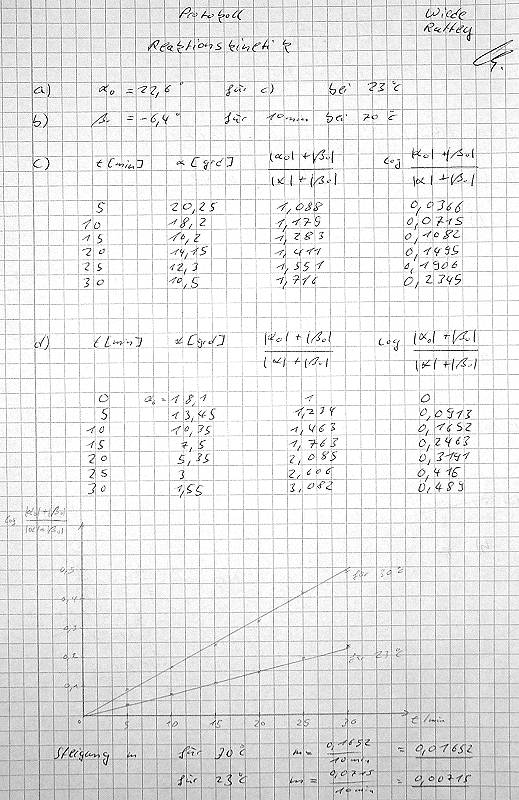 Protokoll Wiede
Reaktionskinetik
a) α₀ = 22,6° für c) bei 23°C
b) β₀ = -6,4° für 10 min bei 70°C
c) t [min] α [grd] |α₀|+|β₀| / |α|+|β₀| log |α₀|+|β₀| / |α|+|β₀|
5 20,25 1,088 0,0366
10 18,2 1,179 0,0715
15 16,2 1,283 0,1082
20 14,15 1,411 0,1495
25 12,3 1,551 0,1906
30 10,5 1,716 0,2345
d) t [min] α [grd] |α₀|+|β₀| / |α|+|β₀| log |α₀|+|β₀| / |α|+|β₀|
0 α₀ = 18,1 1 0
5 13,45 1,234 0,0913
10 10,35 1,463 0,1652
15 7,5 1,763 0,2463
20 5,35 2,085 0,3191
25 3 2,606 0,416
30 1,55 3,082 0,489
log |α₀|+|β₀| / |α|+|β₀|
0,5 für 30°C
0,4
0,3
0,2 für 23°C
0,1
0 5 10 15 20 25 30 t/min
Steigung m für 30°C m = 0,1652 / 10 min = 0,01652
für 23°C m = 0,0715 / 10 min = 0,00715